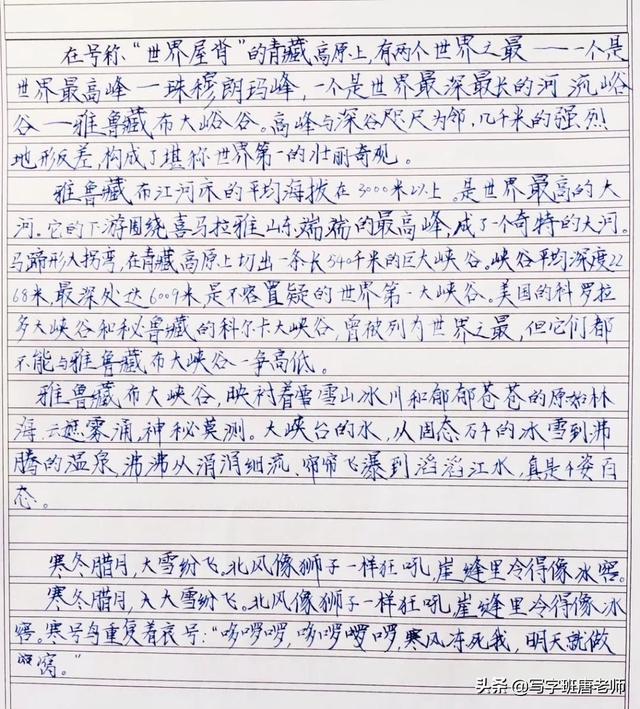 在号称“世界屋脊”的青藏高原上,有两个世界之最——一个是
世界最高峰—珠穆朗玛峰,一个是世界最深最长的河流峪
谷—雅鲁藏布大峪谷。高峰与深谷咫尺为邻,几千米的强烈
地形反差,构成了堪称世界第一的壮丽奇观。
雅鲁藏布江河床的平均海拔在3000米以上。是世界最高的大
河。它的下游围绕喜马拉雅山东端端的最高峰,成了一个奇特的大河。
马蹄形大拐弯,在青藏高原上切出一条长540千米的巨大峡谷。峡谷平均深度22
68米,最深处达6009米,是不容置疑的世界第一大峡谷。美国的科罗拉
多大峡谷和秘鲁藏的科尔卡大峡谷,曾被列为世界之最,但它们都
不能与雅鲁藏布大峡谷一争高低。
雅鲁藏布大峡谷,映衬着雪雪山冰川和郁郁苍苍的原始林
海,云遮雾涌,神秘莫测。大峡台的水,从固态万千的冰雪到沸
腾的温泉,沸沸从涓涓细流、帘帘飞瀑到滔滔江水,真是千姿百
态。
寒冬腊月,大雪纷飞。北风像狮子一样狂吼,崖缝里冷得像冰窖。
寒冬腊月,大大雪纷飞。北风像狮子一样狂吼,崖缝里冷得像冰
窖。寒号鸟重复着哀号:“哆啰啰,哆啰啰啰,寒风冻死我,明天就做
窝。”
头条@写字班唐老师